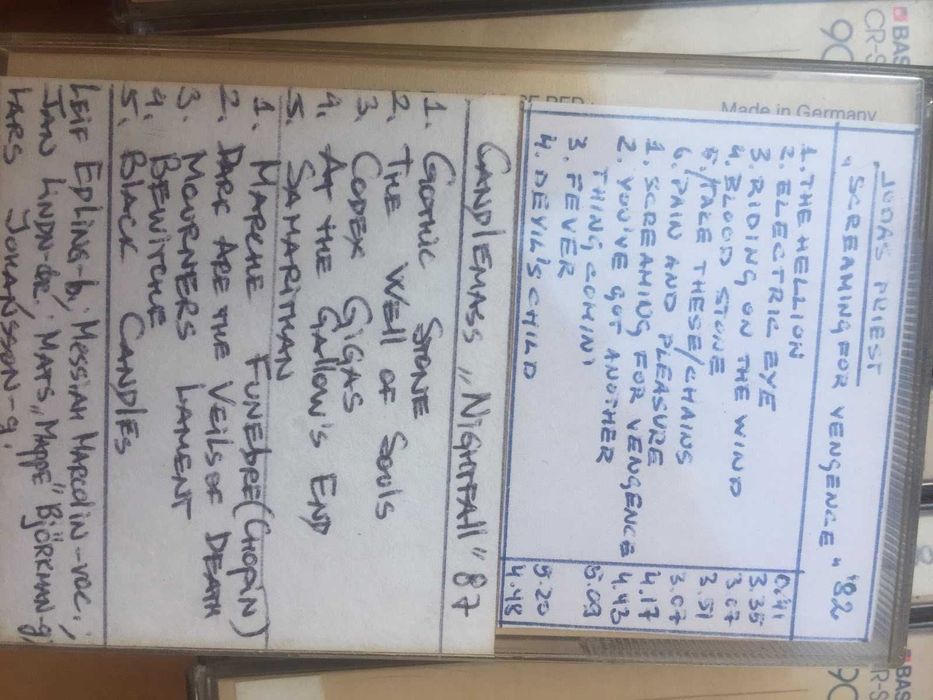 BAS
CR-S
90
Made in Germany
JUDAS PRIEST
„ SCREAMING FOR VENGENCE " '82
1. THE HELLION 0.41
2. ELECTRIC EYE 3.35
3. RIDING ON THE WIND 3.07
4. BLOOD STONE 3.51
5. /TAKE THESE/CHAINS 3.07
6. PAIN AND PLEASURE 4.17
1. SCREAMING FOR VENGENCE 4.43
2. YOU'VE GOT ANOTHER
THING COMIN' 5.09
3. FEVER 5.20
4. DEVIL'S CHILD 4.48
CANDLEMASS „NIGHTFALL" 87
1. GOTHIC STONE
2. THE WELL OF SOULS
3. CODEX GIGAS
4. AT THE GALLOW'S END
5. SAMARITMAN
1. MARCHE FUNEBRE (CHOPIN)
2. DARK ARE THE VEILS OF DEATH
3. MOURNERS LAMENT
4. BEWITCHE
5. BLACK CANDLES
LEIF EDLING-b, MESSIAH MARCOLIN-voc.,
JAN LINDH-dr, MATS „MAPPE" BJÖRKMAN-g,
LARS JOHANSSON-g.
BAS
CR-S
90